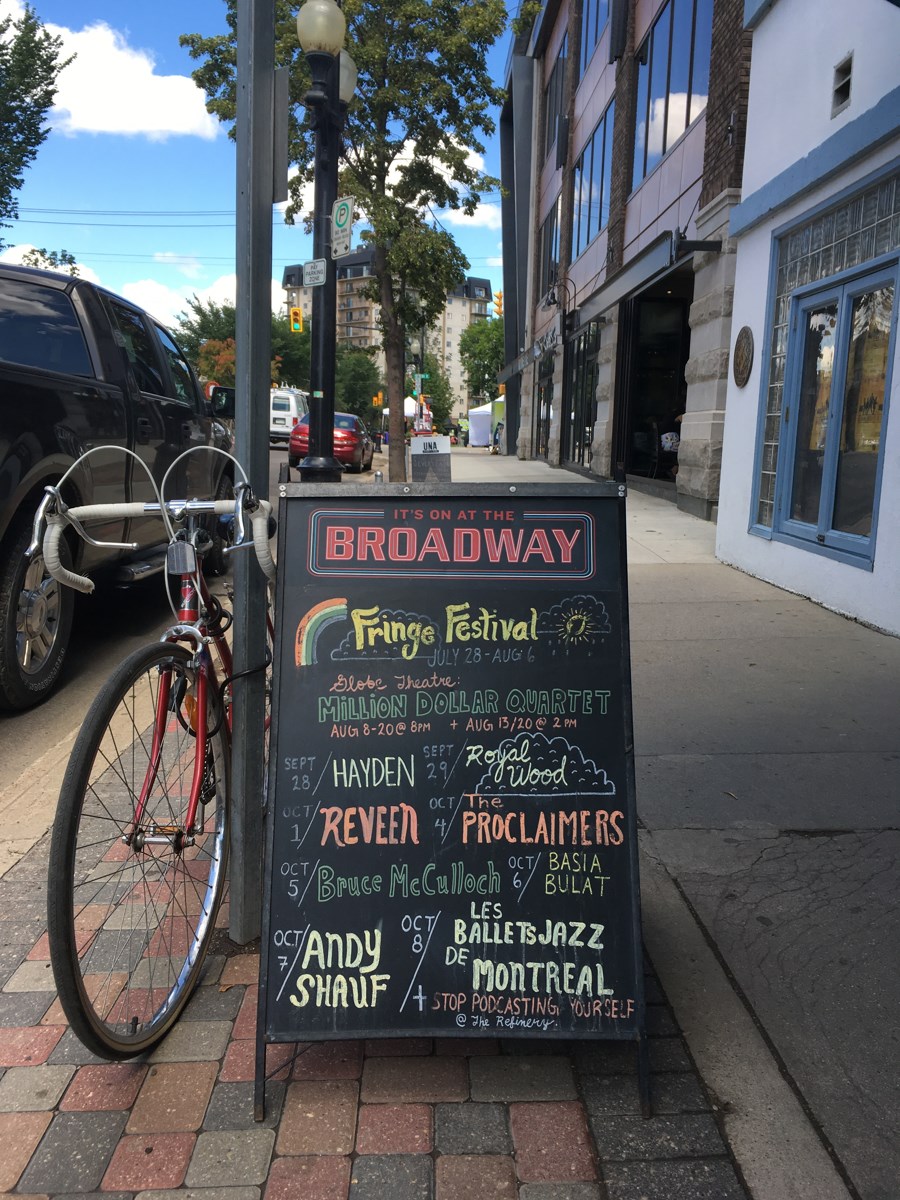 P
PAY
PARKING
ZONE
UNA
IT'S ON AT THE
BROADWAY
Fringe Festival
JULY 28-AUG 6
Globe Theatre:
MILLION DOLLAR QUARTET
AUG 8-20 @ 8PM + AUG 13/20 @ 2 PM
SEPT 28/ HAYDEN
SEPT 29/ Royal Wood
OCT 1/ REVEEN
OCT 4/ The PROCLAIMERS
OCT 5/ Bruce McCulloch
OCT 6/ BASIA BULAT
OCT 7/ ANDY SHAUF
OCT 8/ LES BALLETS JAZZ DE MONTREAL
+ STOP PODCASTING YOURSELF
@ The Refinery.